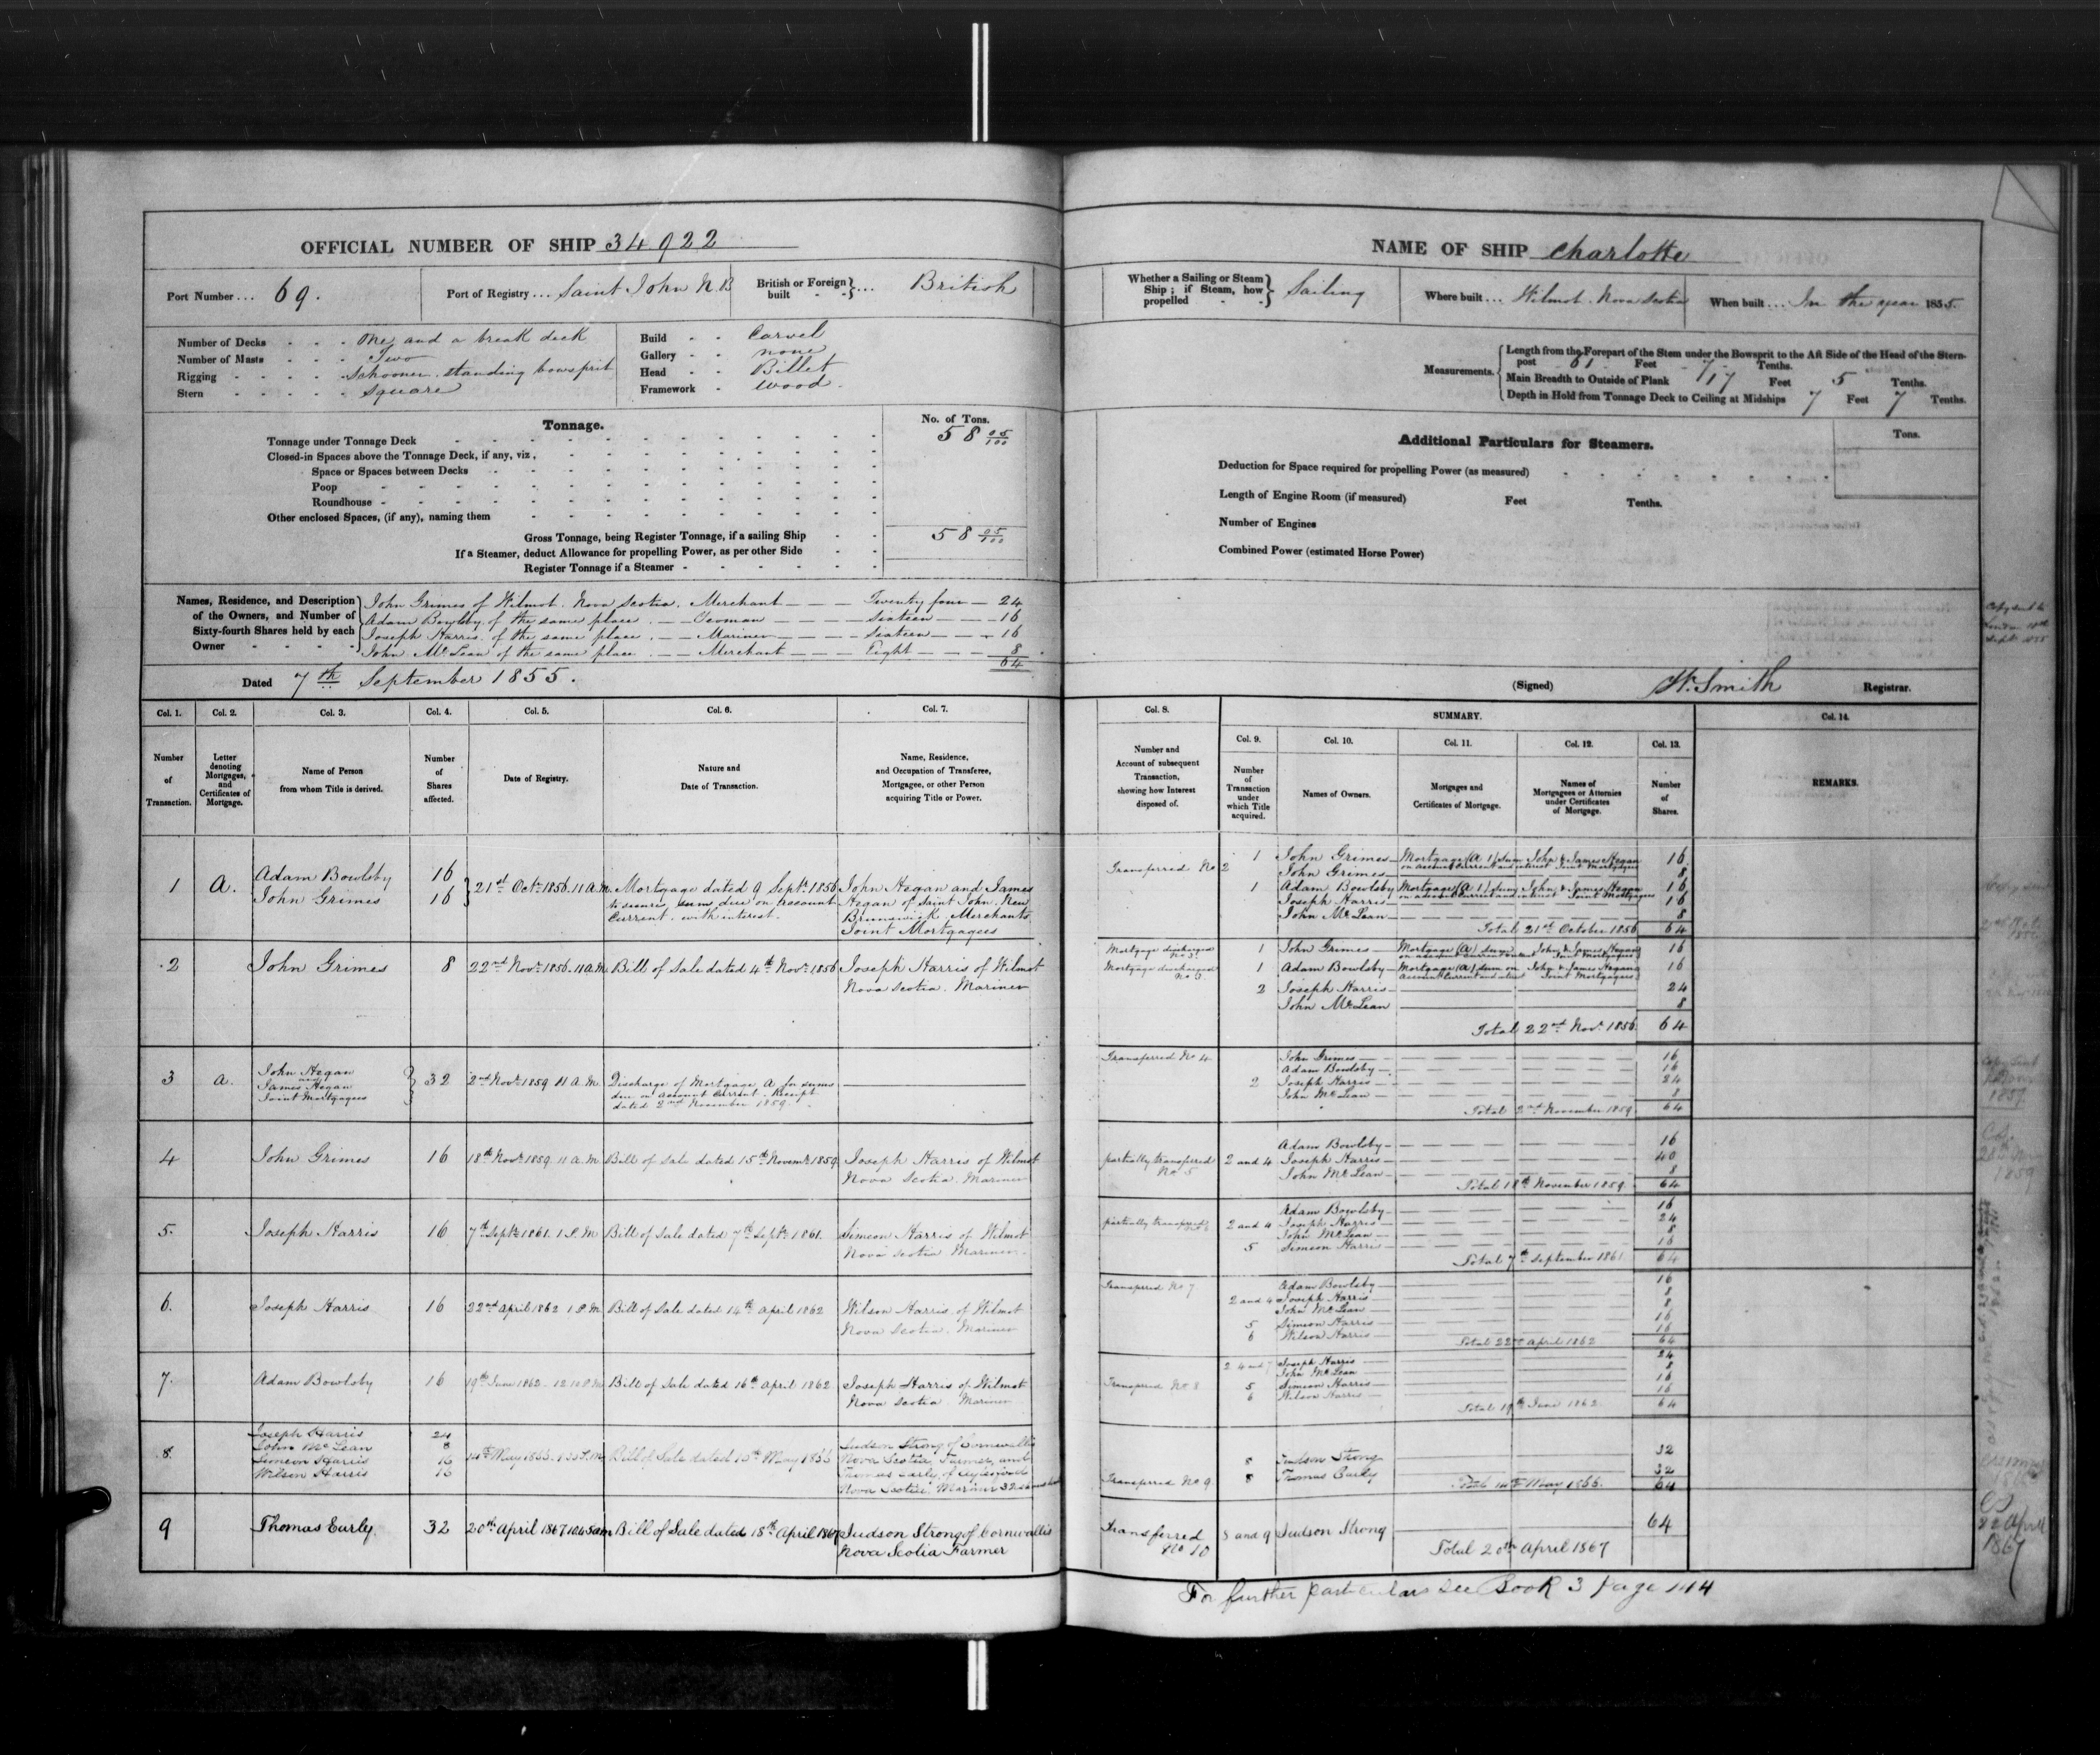 OFFICIAL NUMBER OF SHIP 34922
Port Number... 69.
Port of Registry... Saint John N.B
British or Foreign built - - }... British
Number of Decks - - - One and a break deck
Number of Masts - - - Two
Rigging - - - - - Schooner. standing bowsprit
Stern - - - - - Square
Build - - Carvel
Gallery - - none
Head - - Billet
Framework - Wood.
Tonnage.
No. of Tons.
Tonnage under Tonnage Deck 58 05/100
Closed-in Spaces above the Tonnage Deck, if any, viz.
Space or Spaces between Decks
Poop
Roundhouse
Other enclosed Spaces, (if any), naming them
Gross Tonnage, being Register Tonnage, if a sailing Ship 58 05/100
If a Steamer, deduct Allowance for propelling Power, as per other Side
Register Tonnage if a Steamer
Names, Residence, and Description of the Owners, and Number of Sixty-fourth Shares held by each Owner
John Grimes of Wilmot. Nova Scotia. Merchant — — — Twenty four — 24
Adam Bowlby of the same place. — — Yeoman — — — Sixteen — — 16
Joseph Harris. of the same place. — — Mariner — — — Sixteen — — 16
John McLean of the same place. — — Merchant — — — Eight — — — 8
64
Dated 7th September 1855.
Col. 1. Col. 2. Col. 3. Col. 4. Col. 5. Col. 6. Col. 7.
Number of Transaction.
Letter denoting Mortgages, and Certificates of Mortgage.
Name of Person from whom Title is derived.
Number of Shares affected.
Date of Registry.
Nature and Date of Transaction.
Name, Residence, and Occupation of Transferee, Mortgagee, or other Person acquiring Title or Power.
1 A. Adam Bowlsby 16
John Grimes 16
21st Octr 1856. 11 A.M.
Mortgage dated 9 Septr 1856
to secure sums due on account
Current. with interest.
John Hegan and James
Hegan of Saint John. New
Brunswick. Merchants
Joint Mortgagees
2 John Grimes 8 22nd Novr 1856. 11 A.M. Bill of Sale dated 4th Novr 1856 Joseph Harris of Wilmot
Nova Scotia. Mariner
3 a. John Hegan
and
James Hegan
Joint Mortgagees
32 2nd Novr 1859 11 A.M.
Discharge of Mortgage A for sums
due on account Current. Receipt
dated 2nd November 1859.
4 John Grimes 16 18th Novr 1859. 11 A.M. Bill of Sale dated 15th Novemr 1859. Joseph Harris of Wilmot
Nova Scotia. Mariner
5. Joseph Harris 16 7th Septr 1861. 1 P.M Bill of Sale dated 7th Septr 1861. Simeon Harris of Wilmot
Nova Scotia Mariner.
6. Joseph Harris 16 22nd April 1862 1 P.M Bill of Sale dated 14th April 1862 Wilson Harris of Wilmot
Nova Scotia. Mariner
7. Adam Bowlsby 16 19th June 1862 Bill of Sale dated 16th April 1862 Joseph Harris of Wilmot
Nova Scotia. Mariner
8. Joseph Harris 24
John McLean 8
Simeon Harris 16
Wilson Harris 16
Bill of Sale dated
Judson Strong of Cornwallis
Nova Scotia, Farmer, and
Thomas Early, of Aylesford
Nova Scotia, Mariner 32
9 Thomas Early. 32 20th April 1867 10.45am Bill of Sale dated 18th April 1867 Judson Strong of Cornwallis
Nova Scotia Farmer
NAME OF SHIP Charlotte
Whether a Sailing or Steam Ship; if Steam, how propelled - - } Sailing
Where built... Wilmot. Nova Scotia
When built... In the year 1855.
Measurements.
Length from the Forepart of the Stem under the Bowsprit to the Aft Side of the Head of the Stern-
post 61 Feet 7 Tenths.
Main Breadth to Outside of Plank 17 Feet 5 Tenths.
Depth in Hold from Tonnage Deck to Ceiling at Midships 7 Feet 7 Tenths.
Additional Particulars for Steamers.
Tons.
Deduction for Space required for propelling Power (as measured)
Length of Engine Room (if measured) Feet Tenths.
Number of Engines
Combined Power (estimated Horse Power)
Copy sent to
London 10th
Septr 1855
(Signed) W. Smith Registrar.
Col. 8. SUMMARY. Col. 14.
Col. 9. Col. 10. Col. 11. Col. 12. Col. 13.
Number and Account of subsequent Transaction, showing how Interest disposed of.
Number of Transaction under which Title acquired.
Names of Owners.
Mortgages and Certificates of Mortgage.
Names of Mortgagees or Attornies under Certificates of Mortgage.
Number of Shares.
REMARKS.
1 John Grimes — Mortgage (A 1) Sum John & James Hegan 16
on account Current and interest Joint Mortgagees
Transferred No 2 John Grimes — 8
1 Adam Bowlsby Mortgage (A 1) Sum John & James Hegan 16
on account Current and interest Joint Mortgagees
Joseph Harris — 16
John McLean — 8
Total 21st October 1856 64
Mortgage discharged No 3. 1 John Grimes — Mortgage (A) sum John & James Hegan 16
on account Current Joint Mortgagees
Mortgage discharged No 3. 1 Adam Bowlsby — Mortgage (A) sum on John & James Hegan 16
account Current Joint Mortgagees
2 Joseph Harris — 24
John McLean 8
Total 22nd Novr 1856. 64
Transferred No 4 John Grimes — 16
Adam Bowlsby — 16
2 Joseph Harris — 24
John McLean — 8
Total 2nd November 1859 64
Adam Bowlsby — 16
partially transferred No 5 2 and 4 Joseph Harris — 40
John McLean — 8
Total 18th November 1859 64
Adam Bowlsby — 16
partially transferred No 6 2 and 4 Joseph Harris — 24
John McLean — 8
5 Simeon Harris — 16
Total 7th September 1861 64
Transferred No 7 Adam Bowlsby — 16
2 and 4 Joseph Harris — 8
John McLean — 8
5 Simeon Harris — 16
6 Wilson Harris — 16
Total 22nd April 1862 64
2 4 and 7 Joseph Harris — 24
John McLean 8
Transferred No 8 5 Simeon Harris — 16
6 Wilson Harris — 16
Total 19th June 1862. 64
8 Judson Strong 32
Transferred No 9 8 Thomas Early 32
64
Transferred No 10 8 and 9 Judson Strong 64
Total 20th April 1867
22 April
1867
For further particulars see Book 3 page 144